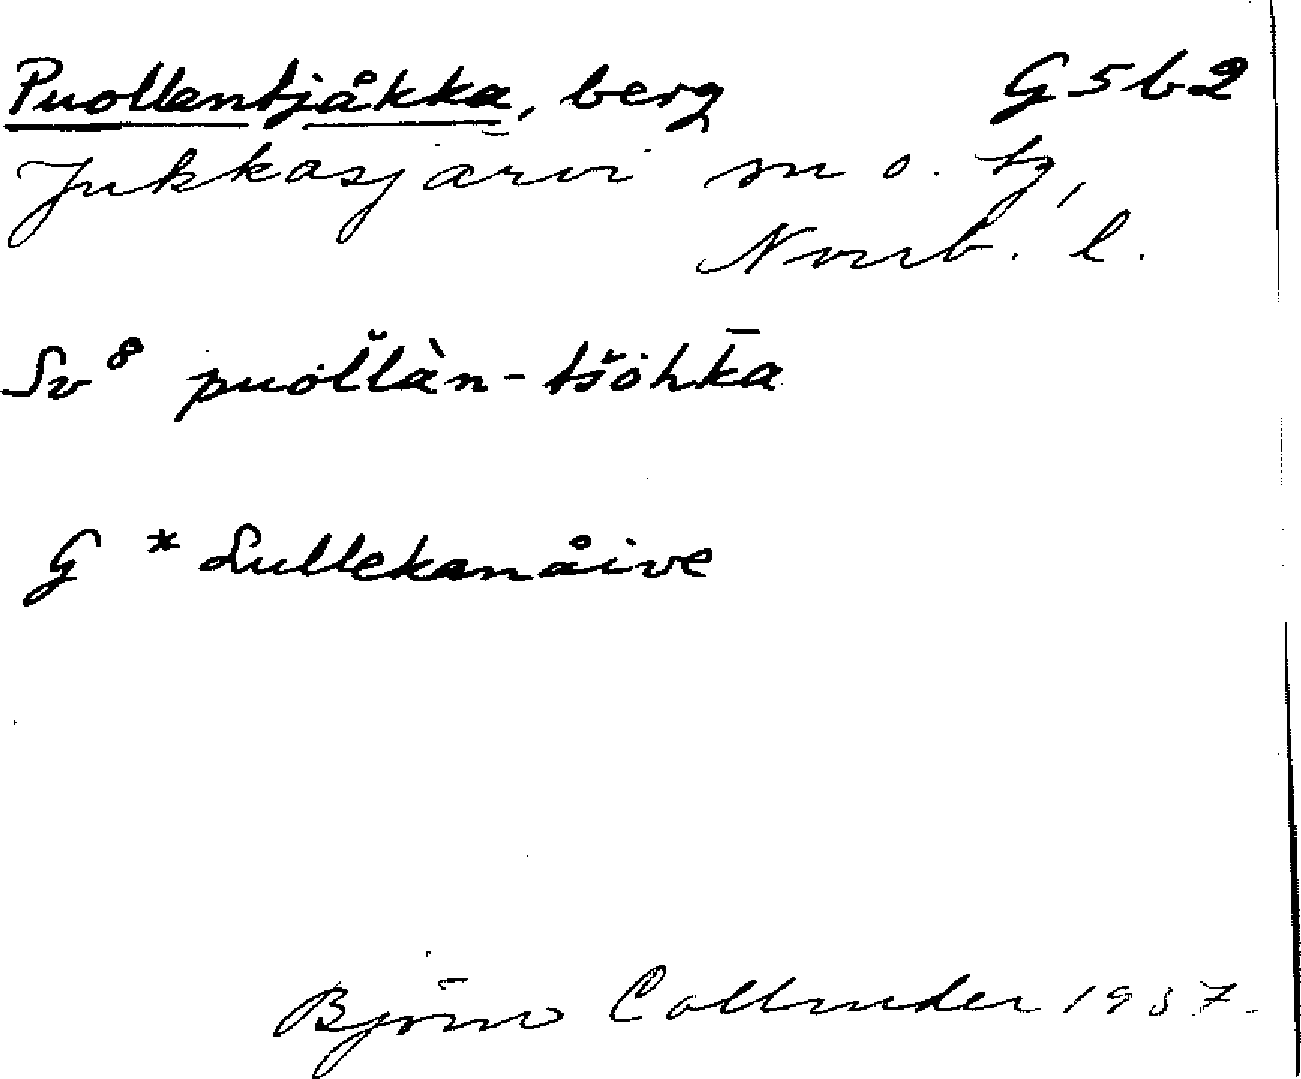 Puollentjåkka, berg G5b2
Jukkasjärvi sn o. tg,
Norrb. l.
Sv 8 puoľlàn-tšȯhk̄a
G *Lullekanåive
Björn Collinder 1937